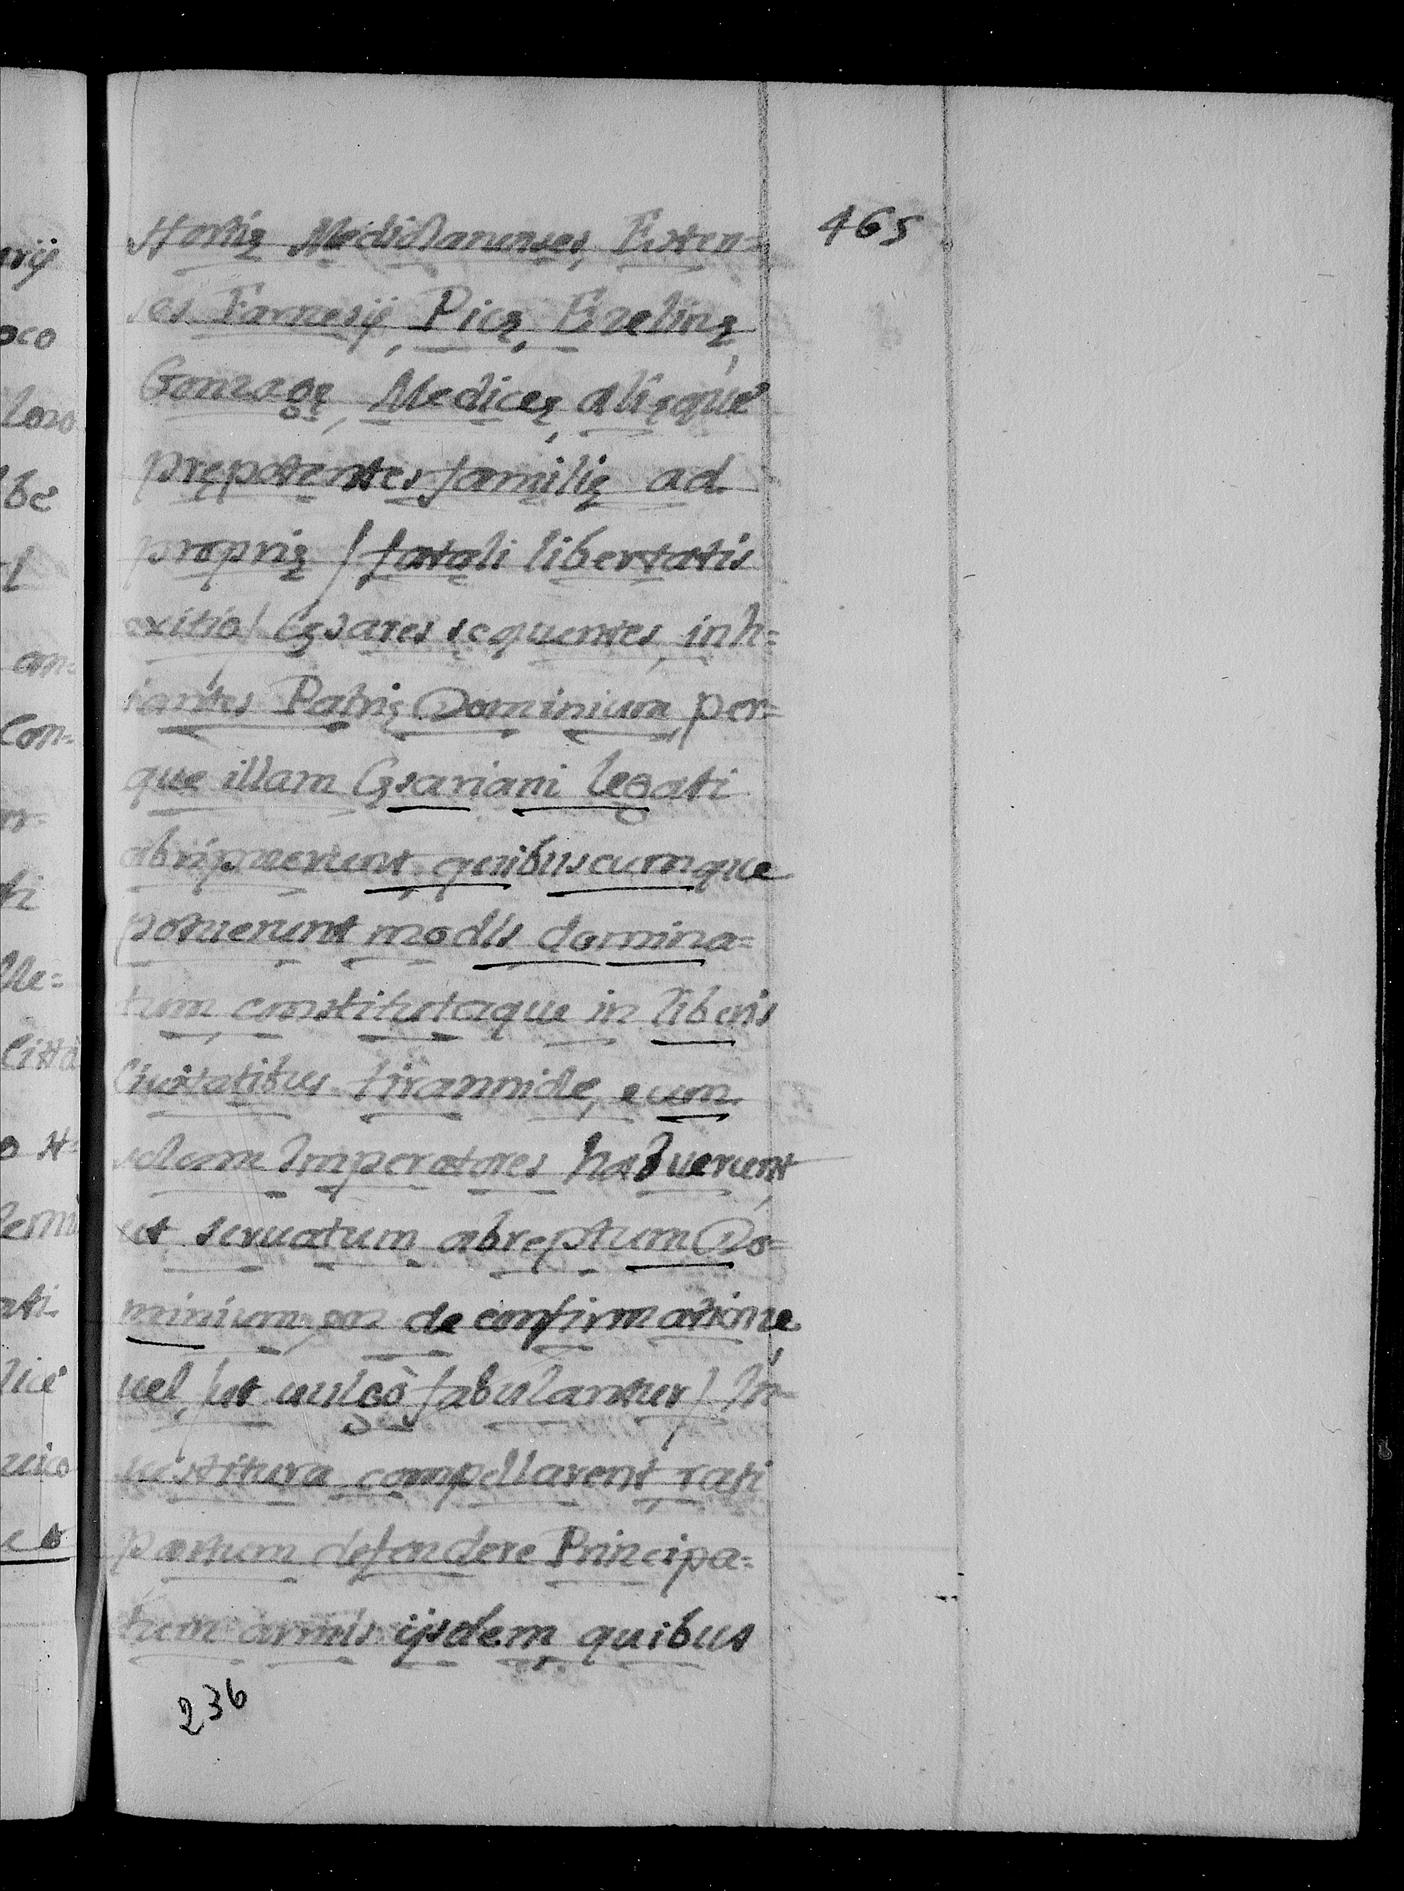 465
Hortię Mediolanenses, Esten=
ses Farnesij, Picę, Ezelinę,
Gonzagę, Medicę, alięque
prępotentes familię ad
proprię / fatali libertatis
exitio / Cęsares sequentes, inh=
iantes Patrię Dominium, per=
que illam Cęsariani legati
abripuerunt, quibuscumque
potuerunt modis domina=
tum constitutaque in liberis
Ciuitatibus tirannide, eum
solum Imperatores habuerunt,
et seruatum abreptum Do=
minium, de confirmatione,
uel, / ut uulgò fabulantur / In=
uestitura compellarent, rati
partum defendere Principa=
tum armis ijsdem quibus
236